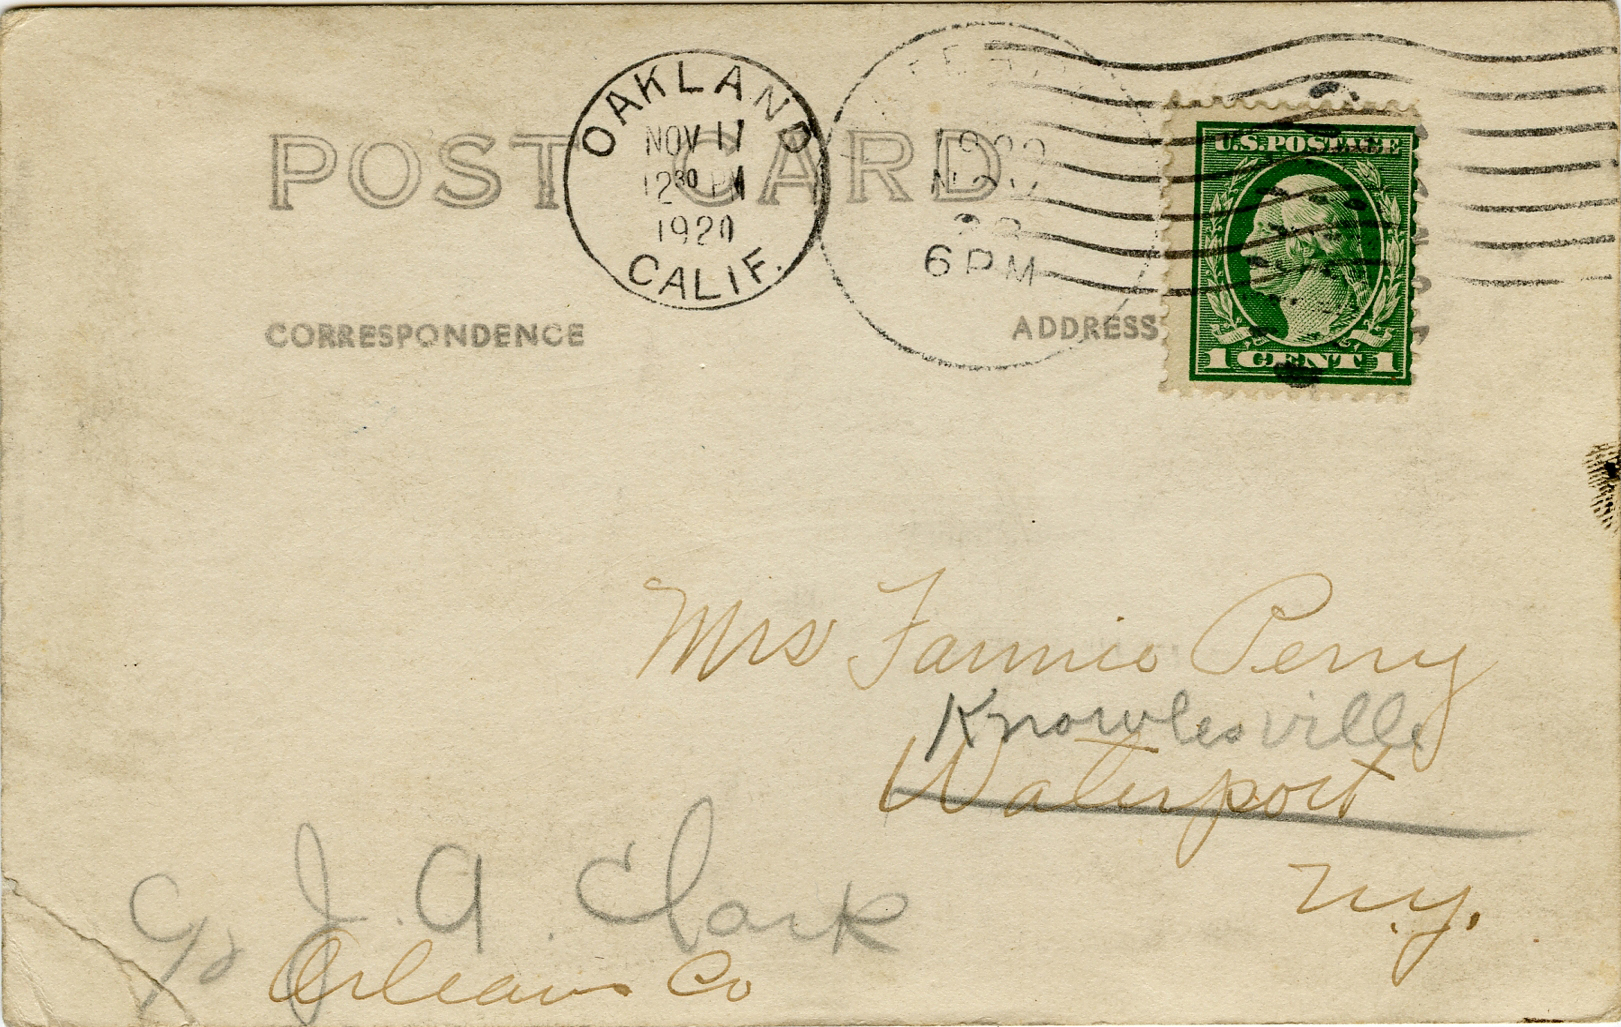 POST CARD
OAKLAND
NOV 17
12 30 PM
1920
CALIF.
1920
NOV
6 PM
U.S. POSTAGE
1 CENT 1
CORRESPONDENCE
ADDRESS
Mrs Fannie Perry
Knowlesville
Waterport
N.Y.
c/o J. A. Clark
Orleans Co